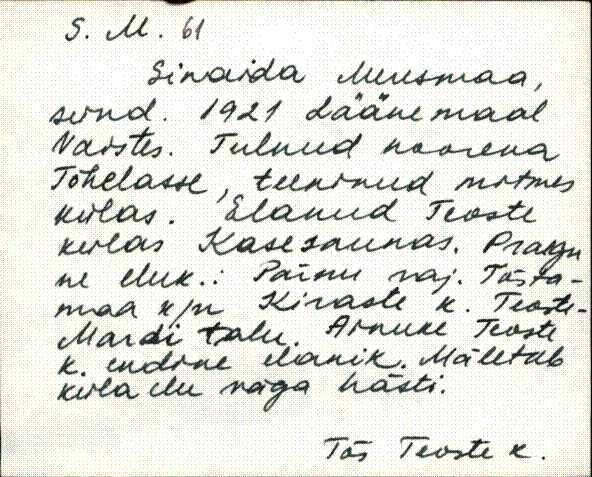 S. M. 61
Sinaida Muusmaa,
sünd. 1921 Läänemaal
Varstes. Tulnud noorena
Tõhelasse, teeninud mitmes
külas. Elanud Teoste
külas Kasesaunas. Praegu
ne eluk.: Pärnu raj. Tõsta-
maa k/n Kiraste k. Teoste-
Mardi talu. Ainuke Teoste
k. endine elanik. Mäletab
küla elu väga hästi.
Tõs Teoste k.